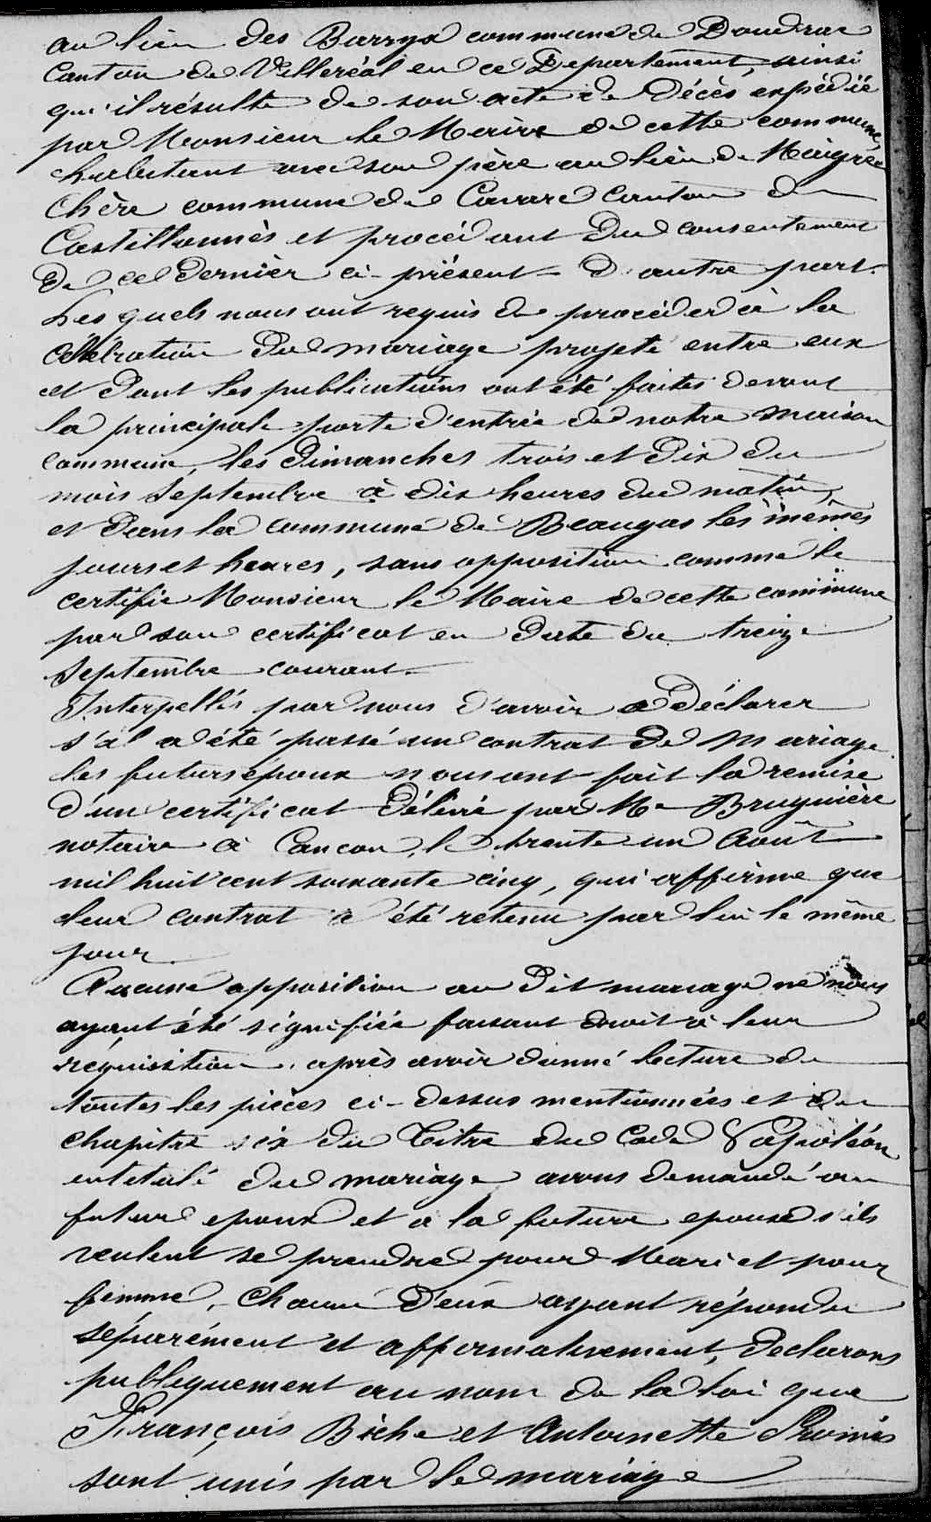 au lieu des Barrys commune de Doudrac
Canton de Villeréal en ce Département, ainsi
qu'il résulte de son acte de Décès expédié
par Monsieur le Maire de cette commune,
habitant avec son père au lieu de Maigre
Chère commune de Cavarc Canton de
Castillonnès et procédant du consentement
de ce dernier ci-présent D'autre part.
Les quels nous ont requis de procéder à la
célébration du mariage projeté entre eux
et dont les publications ont été faites devant
la principale porte d'entrée de notre maison
commune, les Dimanches trois et dix du
mois Septembre à dix heures du matin,
et dans la commune de Beaugas les mêmes
jours et heures, sans opposition comme le
certifie Monsieur le Maire de cette commune
par son certificat en Date du treize
Septembre courant.
Interpellés par nous d'avoir a Déclarer
s'il a été passé un contrat de Mariage
les futurs époux nous ont fait la remise
d'un certificat Délivré par Me Bruguière
notaire à Cancon, le trente un Août
mil huit cent soixante cinq, qui affirme que
leur contrat a été retenu par lui le même
jour
Aucune opposition au Dit mariage ne nous
ayant été signifiée faisant droit à leur
réquisition, après avoir donné lecture de
toutes les pièces ci-dessus mentionnées et du
chapitre six du Titre du Code Napoléon
intitulé du mariage avons demandé au
futur epoux et a la future epouse s'ils
veulent se prendre pour Mari et pour
femme, chacun d'eux ayant répondu
séparément et affirmativement, Declarons
publiquement au nom de la loi que
François Biche et Antoinette
sont unis par le mariage